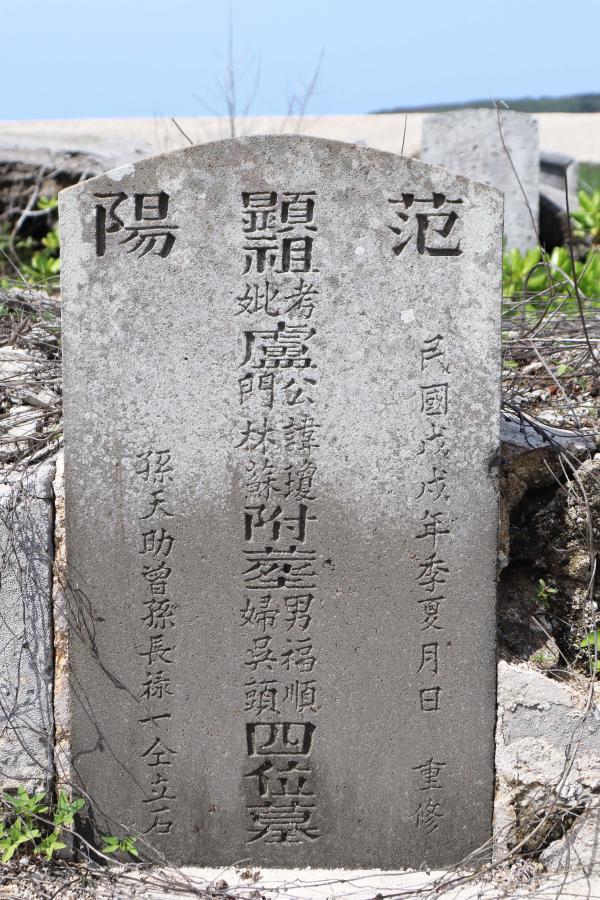 范陽
民國戊戌年季夏月日 重修
顯祖
考
妣
盧
公諱瓊
門林蘇
附塟
男福順
婦吳頭
四位墓
孫天助曾孫長祿仝立石